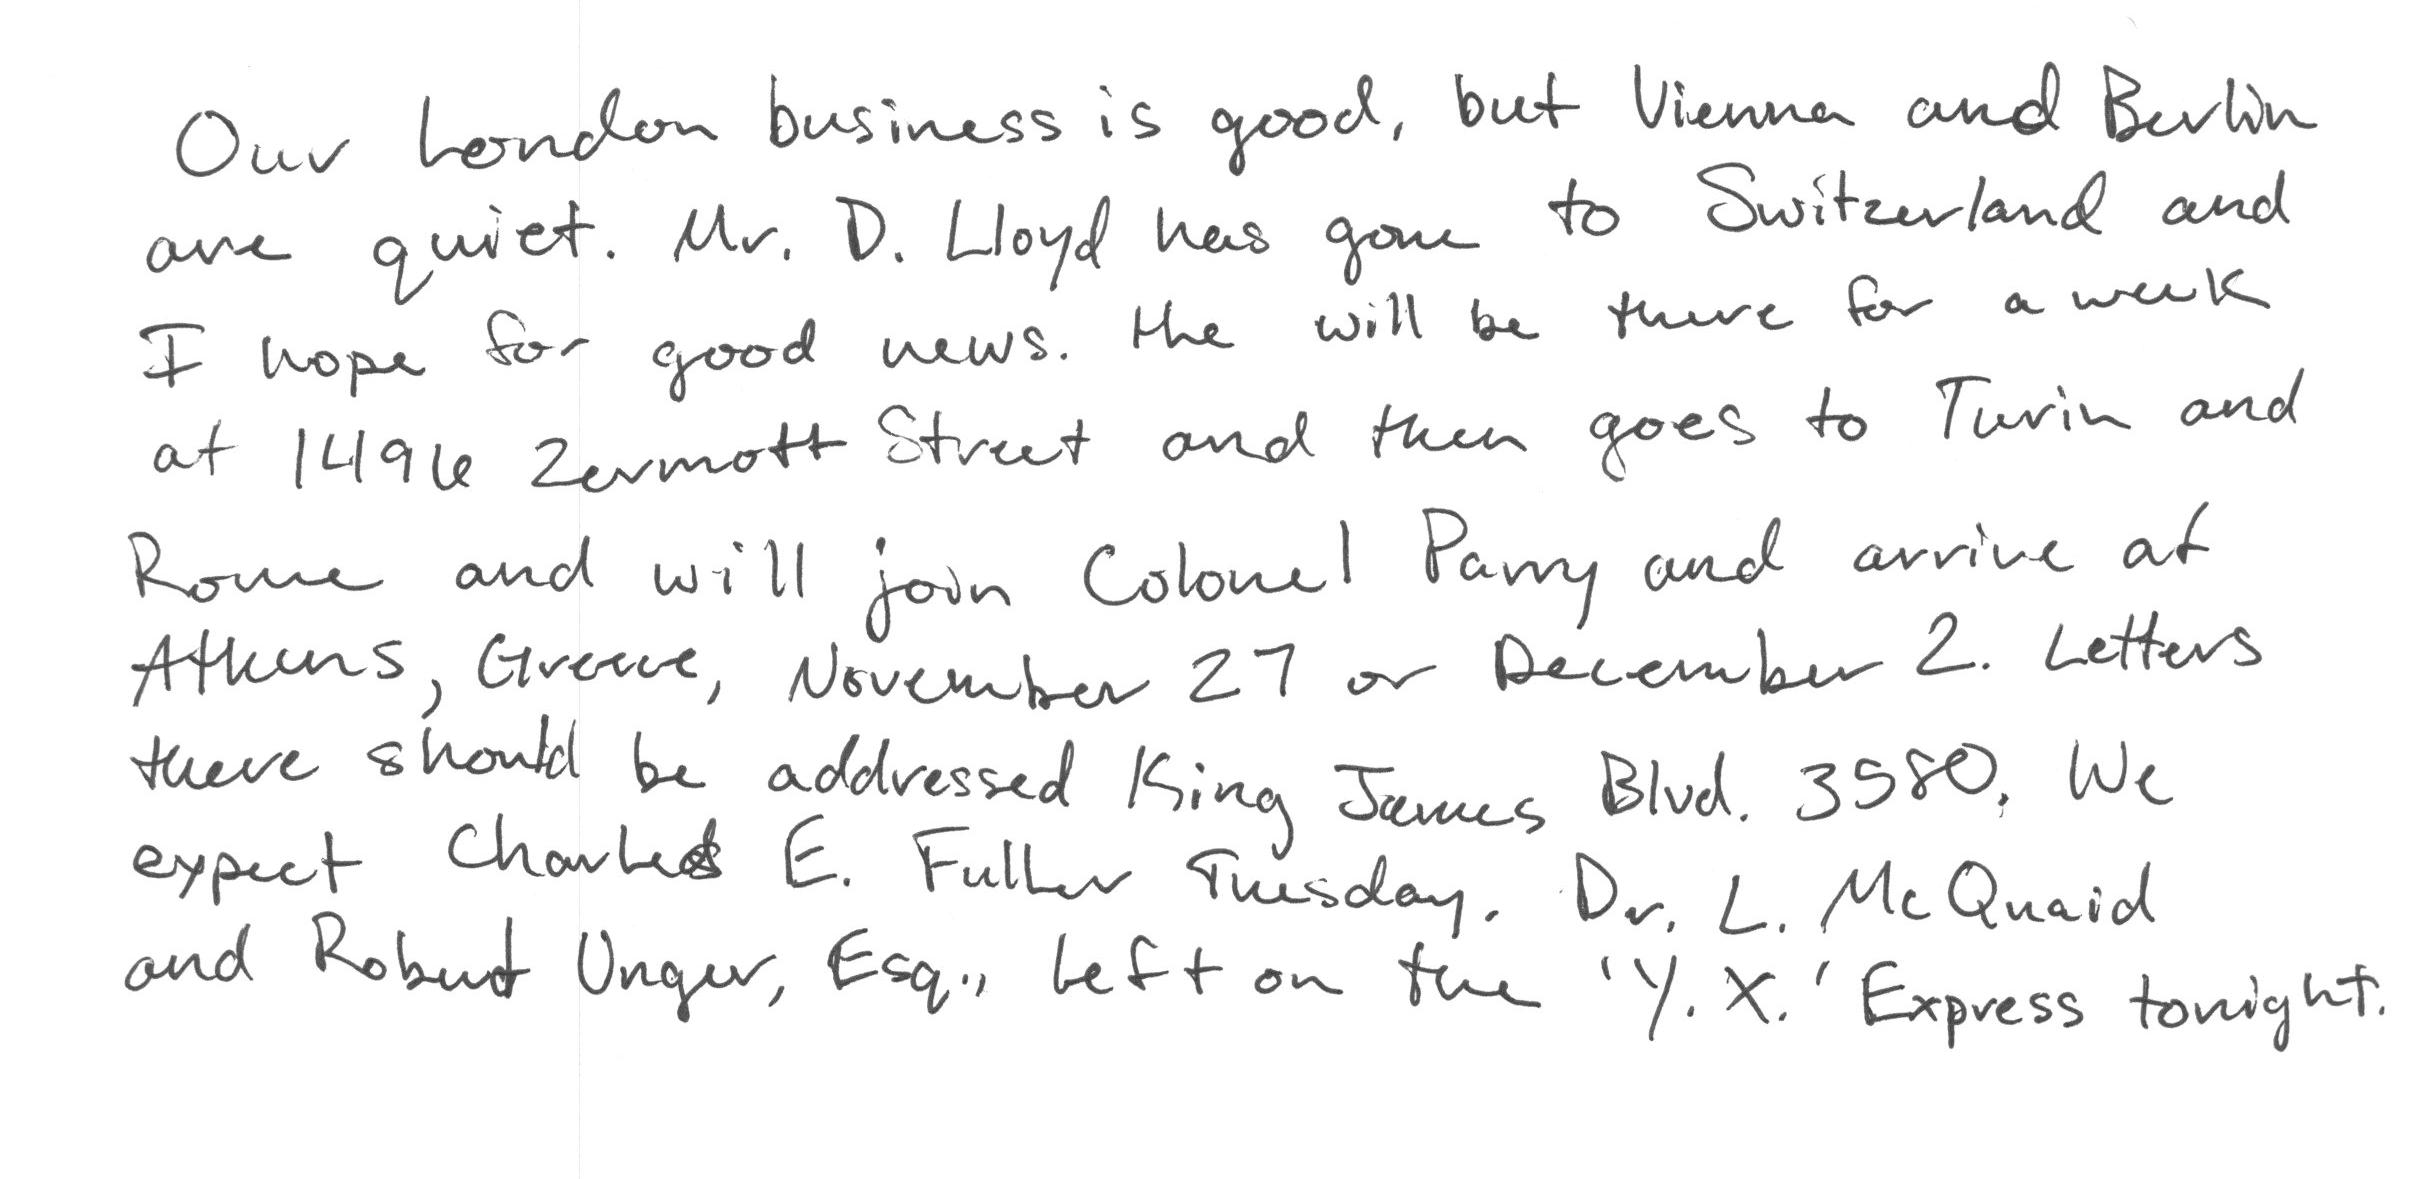 Our London business is good, but Vienna and Berlin
are quiet. Mr. D. Lloyd has gone to Switzerland and
I hope for good news. He will be there for a week
at 1496 Zermott Street and then goes to Turin and
Rome and will join Colonel Parry and arrive at
Athens, Greece, November 27 or December 2. Letters
there should be addressed King James Blvd. 3580. We
expect Charles E. Fuller Tuesday. Dr. L. McQuaid
and Robert Unger, Esq., left on the 'Y. X.' Express tonight.